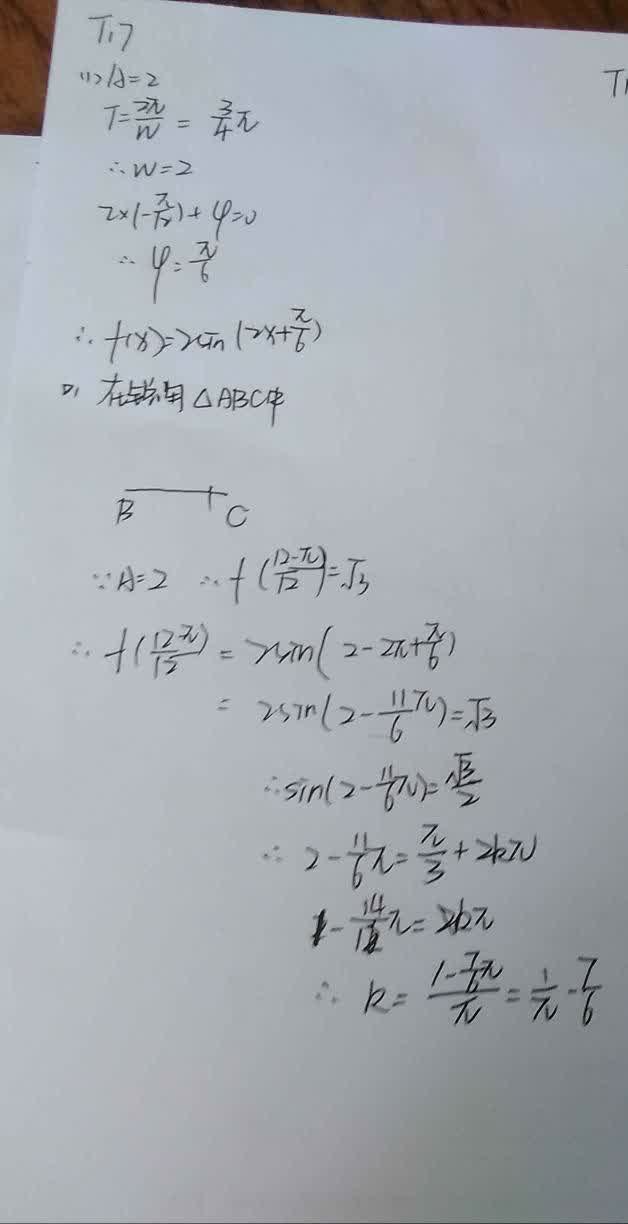 T17
(1) A=2
T=2π/W = 3/4π
∴W=2
2×(-π/12)+φ=0
∴ φ=π/6
∴ f(x)=2sin(2x+π/6)
(2) 在锐角△ABC中
B C
∵A=2 ∴f(12-π/12)=√3
∴ f(12-π/12) = 2sin(2-2π+π/6)
= 2sin(2-11/6π)=√3
∴sin(2-11/6π)=√3/2
∴ 2-11/6π=π/3+2kπ
1-14/12π=2kπ
∴ k= (1-7/6π)/π = 1/π-7/6